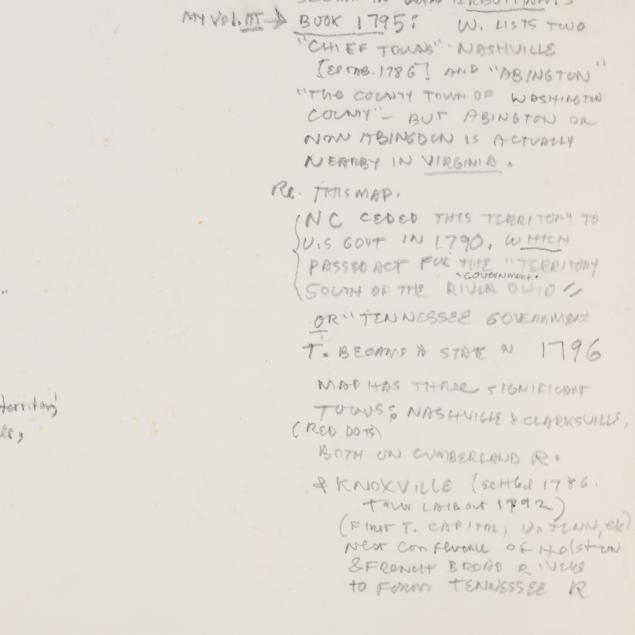 MY VOL. III → BOOK 1795: W. LISTS TWO
"CHIEF TOWNS" NASHVILLE
[ESTAB. 1786] AND "ABINGTON"
"THE COUNTY TOWN OF WASHINGTON
COUNTY" - BUT ABINGTON OR
NOW ABINGDON IS ACTUALLY
NEARBY IN VIRGINIA.
Re. THIS MAP.
NC CEDED THIS TERRITORY TO
U.S GOVT IN 1790, WHICH
PASSED ACT FOR THE "TERRITORY
"GOVERNMENT"
SOUTH OF THE RIVER OHIO"
OR "TENNESSEE GOVERNMENT
T. BECAME A STATE IN 1796
MAP HAS THREE SIGNIFICANT
TOWNS; NASHVILLE & CLARKSVILLE,
(RED DOTS)
BOTH ON CUMBERLAND R.
& KNOXVILLE (settled 1786.
TOWN LAID OUT 1792)
(FIRST T. CAPITAL, U. TENN, etc)
near confluence OF Holston
& FRENCH BROAD RIVERS
to FORM TENNESSEE R
territory